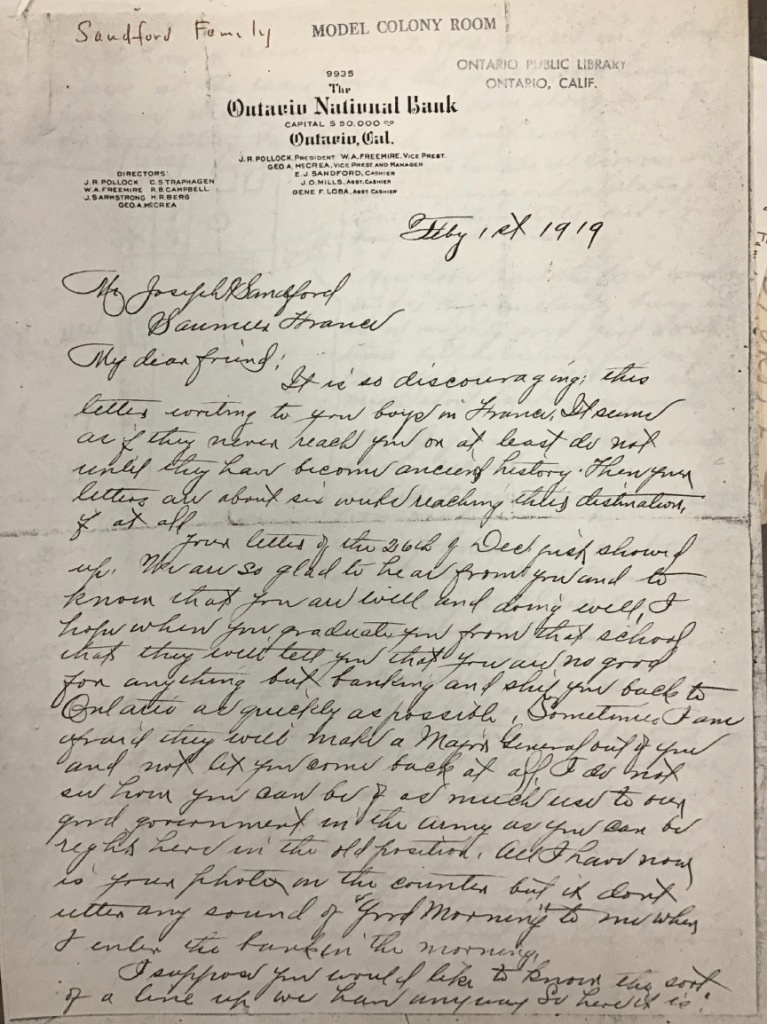 Sandford Family
MODEL COLONY ROOM
ONTARIO PUBLIC LIBRARY
ONTARIO, CALIF.
9935
The
Ontario National Bank
CAPITAL $50.000 00
Ontario, Cal.
J.R. POLLOCK, PRESIDENT W.A. FREEMIRE, VICE PREST.
GEO A. MCCREA, VICE PREST AND MANAGER
E.J. SANDFORD, CASHIER
J.O. MILLS, ASST. CASHIER
GENE F. LOBA, ASST CASHIER
DIRECTORS
J.R. POLLOCK C.S. TRAPHAGEN
W.A. FREEMIRE R.B. CAMPBELL
J.S. ARMSTRONG H.R. BERG
GEO. A. MCCREA
Feby 1st 1919
Mr Joseph Sandford
Saumur France
My dear friend;
It is so discouraging; this
letter writing to you boys in France. It seems
as if they never reach you or at least do not
until they have become ancient history. Then your
letters are about six weeks reaching their distination,
if at all
Your letter of the 26th of Dec. just showed
up. We are so glad to hear from you and to
know that you are well and doing well, I
hope when you graduate you from that school
that they will tell you that you are no good
for anything but banking and ship you back to
Ontario as quickly as possible. Sometimes I am
afraid they will make a Major General out of you
and not let you come back at all. I do not
see how you can be of as much use to our
good government in the army as you can be
right here in the old position. All I have now
is your photo on the counter but it dont
utter any sound of "Good Morning" to me when
I enter the bank in the morning.
I suppose you would like to know the sort
of a line up we have anyway So here it is: